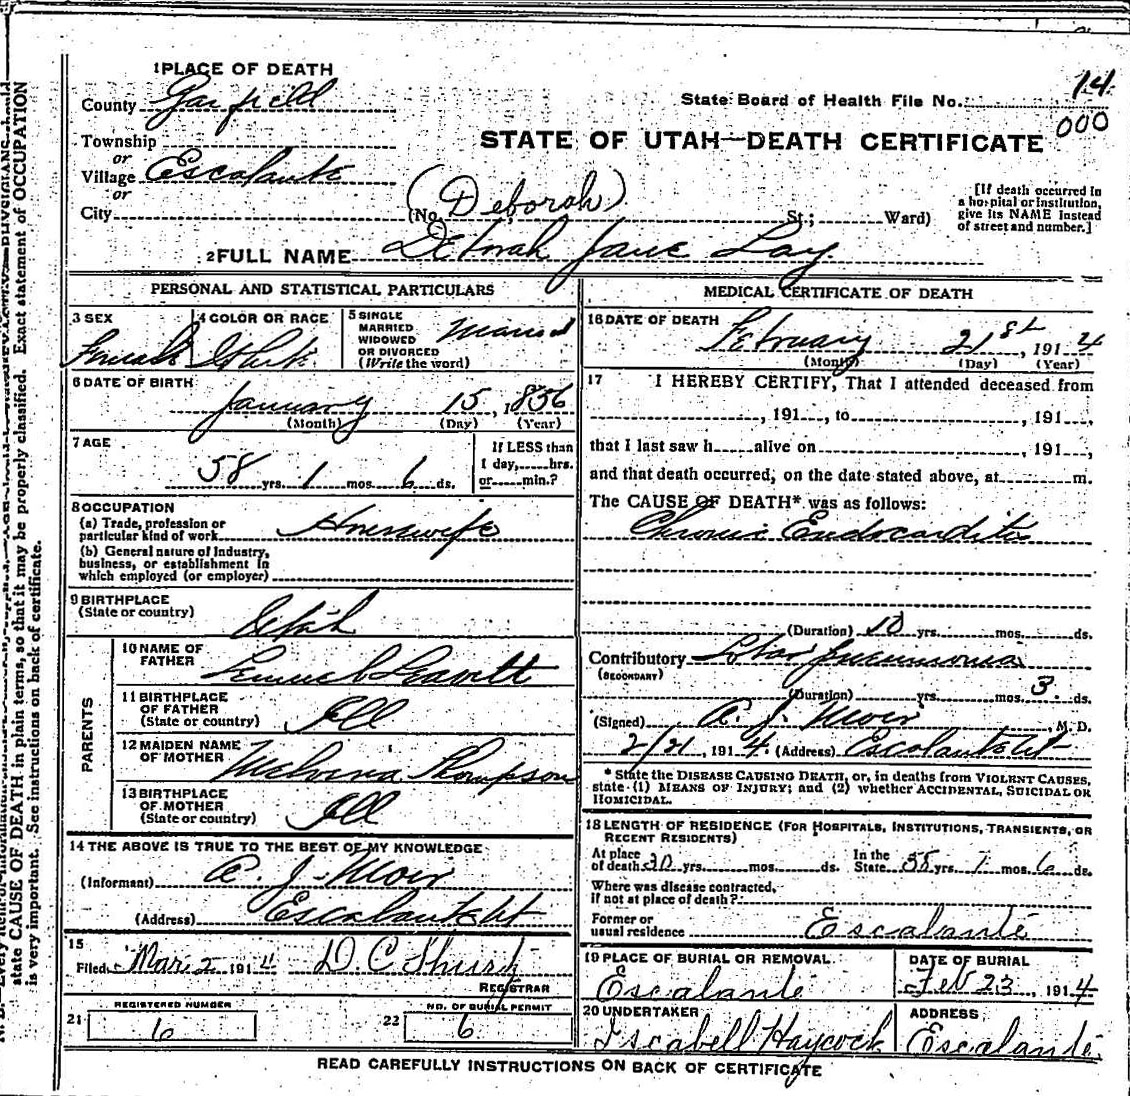 1 PLACE OF DEATH
County Garfield
Township
or
Village Escalante
or
City
State Board of Health File No. 14
000
STATE OF UTAH—DEATH CERTIFICATE
(No. (Deborah) St.; Ward)
[If death occurred in a hospital or institution, give its NAME instead of street and number.]
2 FULL NAME Deborah Jane Lay.
PERSONAL AND STATISTICAL PARTICULARS
3 SEX Female
4 COLOR OR RACE White
5 SINGLE MARRIED WIDOWED OR DIVORCED (Write the word) Married
6 DATE OF BIRTH
January 15, 1856
(Month) (Day) (Year)
7 AGE
58 yrs. 1 mos. 6 ds.
If LESS than 1 day, hrs. or min.?
8 OCCUPATION
(a) Trade, profession or particular kind of work Housewife
(b) General nature of Industry, business, or establishment in which employed (or employer)
9 BIRTHPLACE
(State or country) Utah
PARENTS
10 NAME OF FATHER Lemuel Leavitt
11 BIRTHPLACE OF FATHER (State or country) Ill
12 MAIDEN NAME OF MOTHER Melvina Thompson
13 BIRTHPLACE OF MOTHER (State or country) Ill
14 THE ABOVE IS TRUE TO THE BEST OF MY KNOWLEDGE
(Informant) A. J. Moir
(Address) Escalante Ut
15
Filed, Mar 2 1914 D C Shurtz
REGISTRAR
REGISTERED NUMBER
21 6
NO. OF BURIAL PERMIT
22 6
MEDICAL CERTIFICATE OF DEATH
16 DATE OF DEATH February 21st, 1914
(Month) (Day) (Year)
17 I HEREBY CERTIFY, That I attended deceased from
, 191 , to , 191 ,
that I last saw h alive on , 191 ,
and that death occurred, on the date stated above, at m.
The CAUSE OF DEATH* was as follows:
Chronic Endocarditis
(Duration) 10 yrs. mos. ds.
Contributory Lobar Pneumonia
(SECONDARY)
(Duration) yrs. mos. 3. ds.
(Signed) A. J. Moir, M. D.
2/21, 1914. (Address) Escalante Ut
* State the DISEASE CAUSING DEATH, or, in deaths from VIOLENT CAUSES,
state (1) MEANS OF INJURY; and (2) whether ACCIDENTAL, SUICIDAL OR
HOMICIDAL.
18 LENGTH OF RESIDENCE (FOR HOSPITALS, INSTITUTIONS, TRANSIENTS, OR
RECENT RESIDENTS)
At place of death 30 yrs. mos. ds. In the State 58 yrs. 1 mos. 6 ds.
Where was disease contracted,
if not at place of death?
Former or usual residence Escalante
19 PLACE OF BURIAL OR REMOVAL
Escalante
DATE OF BURIAL
Feb 23, 1914
20 UNDERTAKER
Iscabell Haycock
ADDRESS
Escalante.
READ CAREFULLY INSTRUCTIONS ON BACK OF CERTIFICATE
state CAUSE OF DEATH in plain terms, so that it may be properly classified. Exact statement of OCCUPATION
is very important. See instructions on back of certificate.